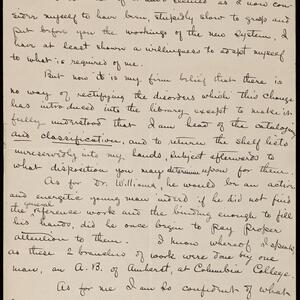 as I now con-
sider myself to have been, stupidly slow to grasp and
put before you the workings of the new System, I
have at least shown a willingness to adapt myself
to what is required of me.
But now it is my firm belief that there is
no way of rectifying the disorders which this Change
has introduced into the library except to make it
fully understood that I am head of the cataloging
and classification, and to return the shelf lists
unreservedly into my hands, subject afterwards to
what disposition you may determine upon for them.
As for Dr. Williams, he would be an active
and energetic young man indeed if he did not find
the general reference work and the binding enough to fill
his hands, did he once begin to pay proper
attention to them. I know whereof I speak
as these 2 branches of work were done by one
man, an A.B. of Amherst, at Columbia College
As for me I am so confident of what